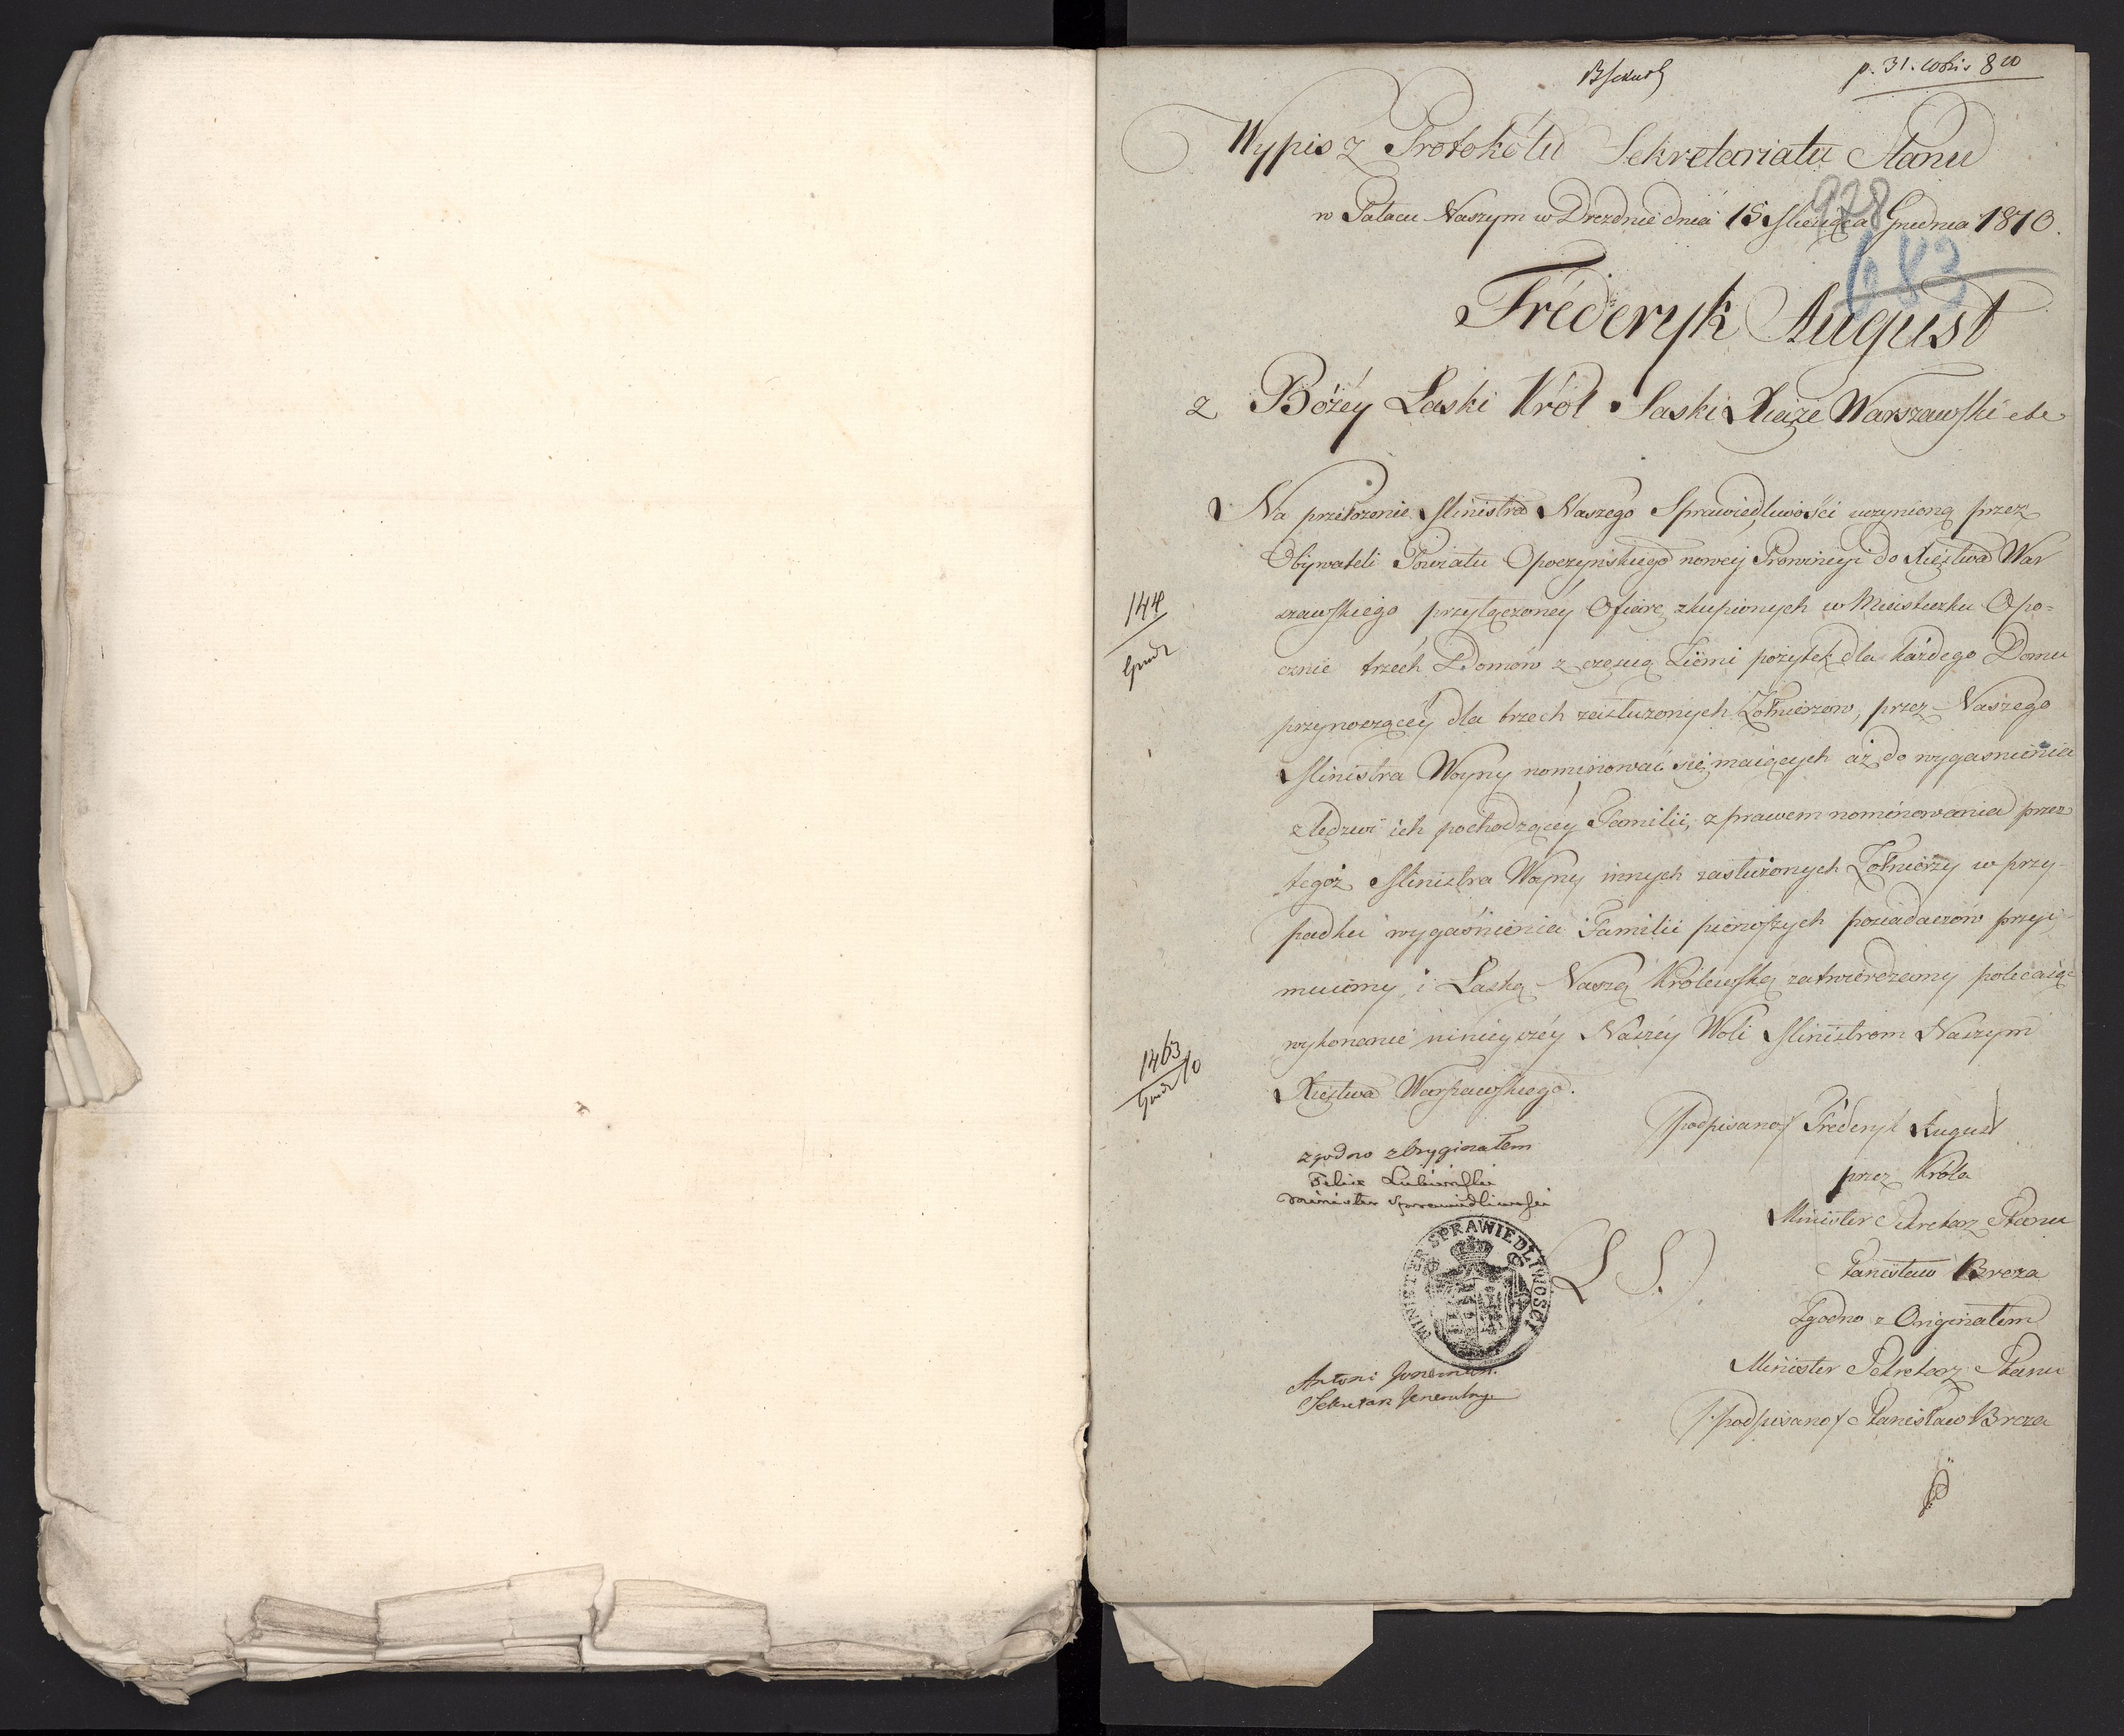 p. 31. 10bris 810
Wypis z Protokółu Sekretariatu Stanu
w Pałacu Naszym w Dreznie dnia 15 Miesiąca Grudnia 1810.
928
683
Fréderyk August
z Bożéy Łaski Król Saski Xiąże Warszawski etc
Na przełożenie Ministra Naszego Sprawiedliwości uczynioną przez
Obywateli Powiatu Opoczyńskiego nowéj Prowincyi do Xięstwa War
szawskiego przyłączonéy Ofiarę zkupionych w Miasteczku Opo=
cznie trzech Domów z częścią Ziemi pożytek dla każdego Domu
przynoszącéy dla trzech zasłużonych Żołnierzów, przez Naszego
Ministra Woyny nominować się maiących aż do wygasnienia
z lędzwi ich pochodzącéy Familii, z prawem nominowania przez
tegoż Ministra Woyny innych zasłużonych Żołnierzy w przy-
padku wygaśnienia Familii pierwszych posiadaczów przyi-
muiemy i Łaską Naszą Królewską zatwierdzamy polecaiąc
wykonanie ninieyszéy Naszéy Woli Ministrom Naszym
Xięstwa Warszawskiego.
144
Grud
1463
Grud 10
/podpisano/ Fréderyk August
przez Króla
Minister Sekretarz Stanu
Stanisław Breza
Zgodno z Originałem
Minister Sekretarz Stanu
/podpisano/ Stanisław Breza
zgodno z Oryginałem
Felix Lubieński
Minister Sprawiedliwości
MINISTER SPRAWIEDLIWOSCI
L S.
Antoni
Sekretarz Jeneralny